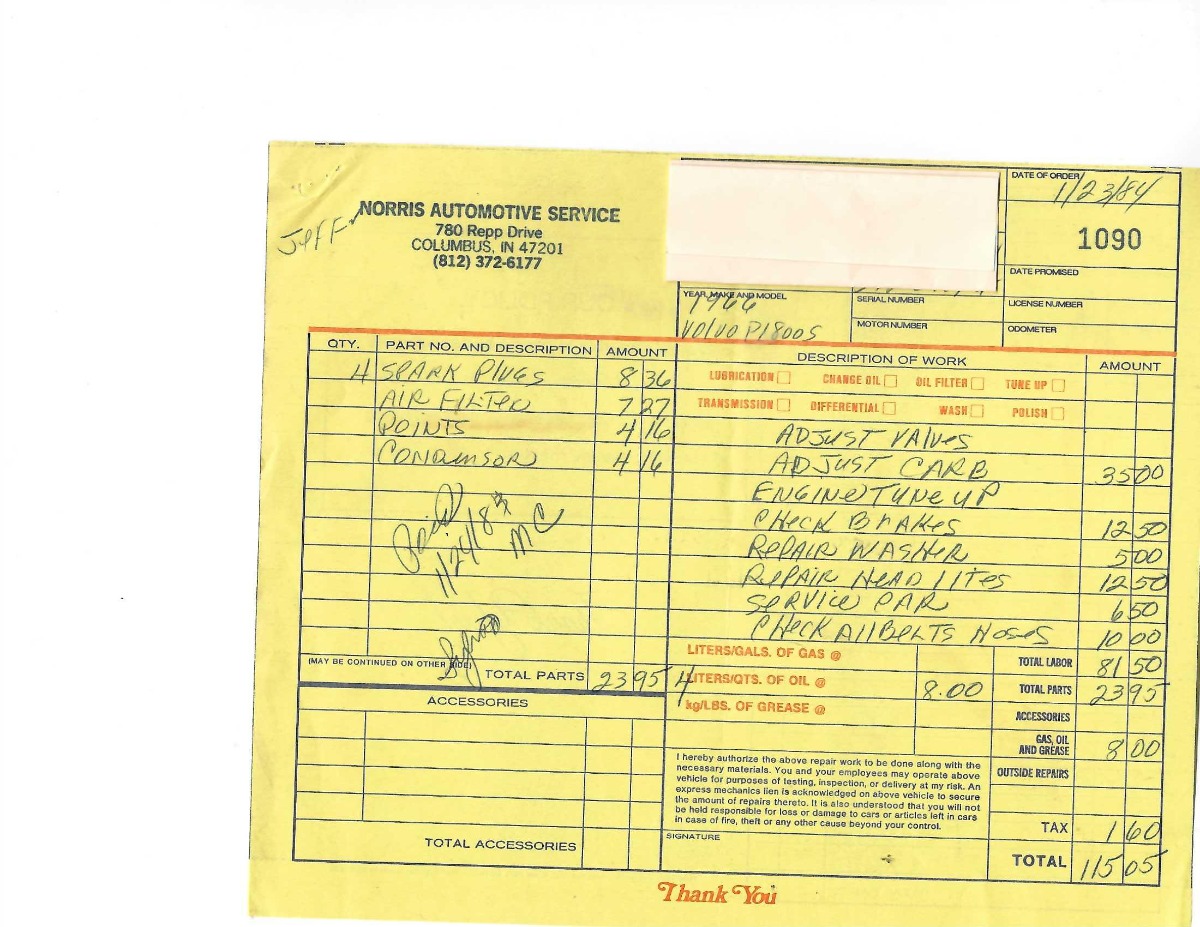 JEFF
NORRIS AUTOMOTIVE SERVICE
780 Repp Drive
COLUMBUS, IN 47201
(812) 372-6177
DATE OF ORDER
1/23/84
1090
DATE PROMISED
YEAR, MAKE AND MODEL
1966
VOLVO P1800S
SERIAL NUMBER
LICENSE NUMBER
MOTOR NUMBER
ODOMETER
QTY. PART NO. AND DESCRIPTION AMOUNT
4 SPARK PLUGS 8 36
AIR FILTER 7 27
POINTS 4 16
CONDENSOR 4 16
Paid
1/24/84
MC
(MAY BE CONTINUED ON OTHER SIDE)
TOTAL PARTS 23 95
ACCESSORIES
TOTAL ACCESSORIES
DESCRIPTION OF WORK AMOUNT
LUBRICATION CHANGE OIL OIL FILTER TUNE UP
TRANSMISSION DIFFERENTIAL WASH POLISH
ADJUST VALVES
ADJUST CARB 35 00
ENGINE TUNE UP
CHECK BRAKES 12 50
REPAIR WASHER 5 00
REPAIR HEAD LITES 12 50
SERVICE CAR 6 50
CHECK All BELTS HOSES 10 00
LITERS/GALS. OF GAS @
TOTAL LABOR 81 50
4 LITERS/QTS. OF OIL @ 8.00
TOTAL PARTS 23 95
kg/LBS. OF GREASE @
ACCESSORIES
GAS, OIL
AND GREASE 8 00
OUTSIDE REPAIRS
I hereby authorize the above repair work to be done along with the
necessary materials. You and your employees may operate above
vehicle for purposes of testing, inspection, or delivery at my risk. An
express mechanics lien is acknowledged on above vehicle to secure
the amount of repairs thereto. It is also understood that you will not
be held responsible for loss or damage to cars or articles left in cars
in case of fire, theft or any other cause beyond your control.
TAX 1 60
SIGNATURE
TOTAL 115 05
Thank You